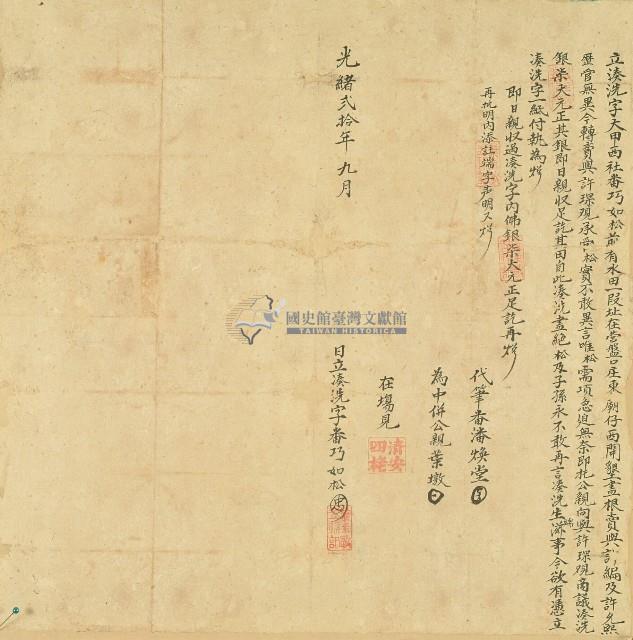 立湊洗字大甲西社番巧如松前有水田一段址在営盤口庄東廟仔西開墾盡根賣與許編及許允熙
歷管無異今轉賣與許琛观承󠄀松實不敢異言唯松需項急迫無奈即托公親向與許琛观商議湊洗
銀柒大元正其銀即日親収足訖其田自此湊洗盡絕松及子孫永不敢再言湊洗生端滋事今欲有憑立
湊洗字一紙付執為炤
即日親収過湊洗字內佛銀柒大元正足訖再炤
再批明內添註端字声明又炤
代筆番潘煥堂
為中併公親葉墩
在塲見
清安
四佬
光緒弍拾年九月 日立湊洗字番巧如松
國史館臺灣文獻館
TAIWAN HISTORICA